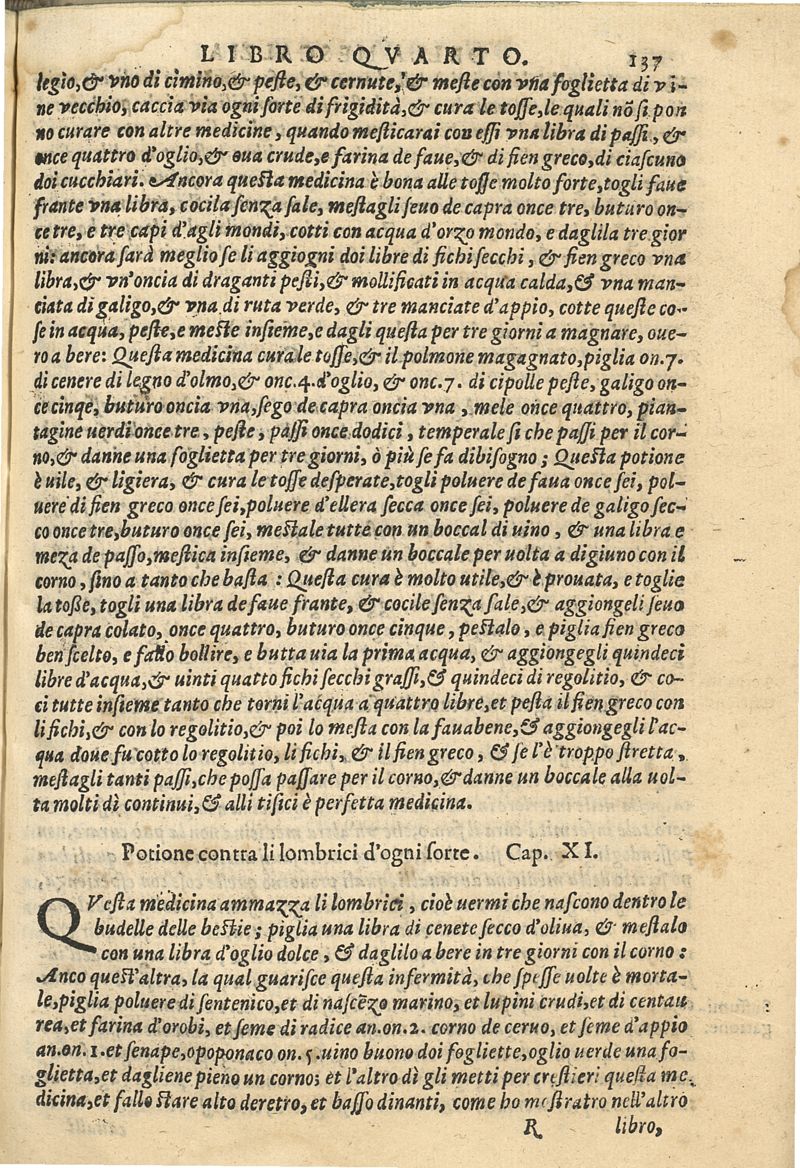 LIBRO QVARTO. 137
legio, & vno di cimino, & peste, & cernute, & meste con vna foglietta di vi-
ne vecchio, caccia via ogni sorte di frigidità, & cura le tosse, le quali nõ si pon
no curare con altre medicine, quando mesticarai con essi vna libra di passi, &
once quattro d'oglio, & oua crude, e farina de faue, & di fien greco, di ciascuno
doi cucchiari. Ancora questa medicina è bona alle tosse molto forte, togli faue
frante vna libra, cocila senza sale, mestagli seuo de capra once tre, buturo on-
ce tre, e tre capi d'agli mondi, cotti con acqua d'orzo mondo, e daglila tre gior
ni: ancora sarà meglio se li aggiogni doi libre di fichi secchi, & fien greco vna
libra, & vn'oncia di draganti pesti, & mollificati in acqua calda, & vna man-
ciata di galigo, & vna di ruta verde, & tre manciate d'appio, cotte queste co-
se in acqua, peste, e meste insieme, e dagli questa per tre giorni a magnare, oue-
ro a bere: Questa medicina cura le tosse, & il polmone magagnato, piglia on. 7.
di cenere di legno d'olmo, & onc. 4. d'oglio, & onc. 7. di cipolle peste, galigo on-
ce cinqe, buturo oncia vna, sego de capra oncia vna, mele once quattro, pian-
tagine uerdi once tre, peste, passi once dodici, temperale si che passi per il cor-
no, & danne una foglietta per tre giorni, ò più se fa dibisogno; Questa potione
è uile, & ligiera, & cura le tosse desperate, togli poluere de faua once sei, pol-
uere di fien greco once sei, poluere d'ellera secca once sei, poluere de galigo sec-
co once tre, buturo once sei, mestale tutte con un boccal di uino, & una libra e
meza de passo, mestica insieme, & danne un boccale per uolta a digiuno con il
corno, sino a tanto che basta: Questa cura è molto utile, & è prouata, e toglie
la tosse, togli una libra de faue frante, & cocile senza sale, & aggiongeli seuo
de capra colato, once quattro, buturo once cinque, pestalo, e piglia fien greco
ben scelto, e fallo bollire, e butta uia la prima acqua, & aggiongegli quindeci
libre d'acqua, & uinti quatto fichi secchi grassi, & quindeci di regolitio, & co-
ci tutte insieme tanto che torni l'acqua a quattro libre, et pesta il fien greco con
li fichi, & con lo regolitio, & poi lo mesta con la faua bene, & aggiongegli l'ac-
qua doue fu cotto lo regolitio, li fichi, & il fien greco, & se l'è troppo stretta,
mestagli tanti passi, che possa passare per il corno, & danne un boccale alla uol-
ta molti dì continui, & alli tisici è perfetta medicina.
Potione contra li lombrici d'ogni sorte. Cap. XI.
QVesta medicina ammazza li lombrici, cioè uermi che nascono dentro le
budelle delle bestie; piglia una libra di cenete secco d'oliua, & mestalo
con una libra d'oglio dolce, & daglilo a bere in tre giorni con il corno:
Anco quest'altra, la qual guarisce questa infermità, che spesse uolte è morta-
le, piglia poluere di sentenico, et di nascēzo marino, et lupini crudi, et di centau
rea, et farina d'orobi, et seme di radice an. on. 2. corno de ceruo, et seme d'appio
an. on. 1. et senape, opoponaco on. 5. uino buono doi fogliette, oglio uerde una fo-
glietta, et dagliene pieno un corno; et l'altro dì gli metti per crestieri questa me
dicina, et fallo stare alto deretro, et basso dinanti, come ho mostratro nell'altro
R libro,